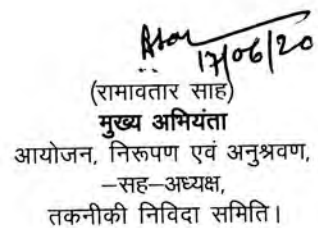 17/06/20
(रामावतार साह)
मुख्य अभियंता
आयोजन, निरूपण एवं अनुश्रवण,
–सह–अध्यक्ष,
तकनीकी निविदा समिति।